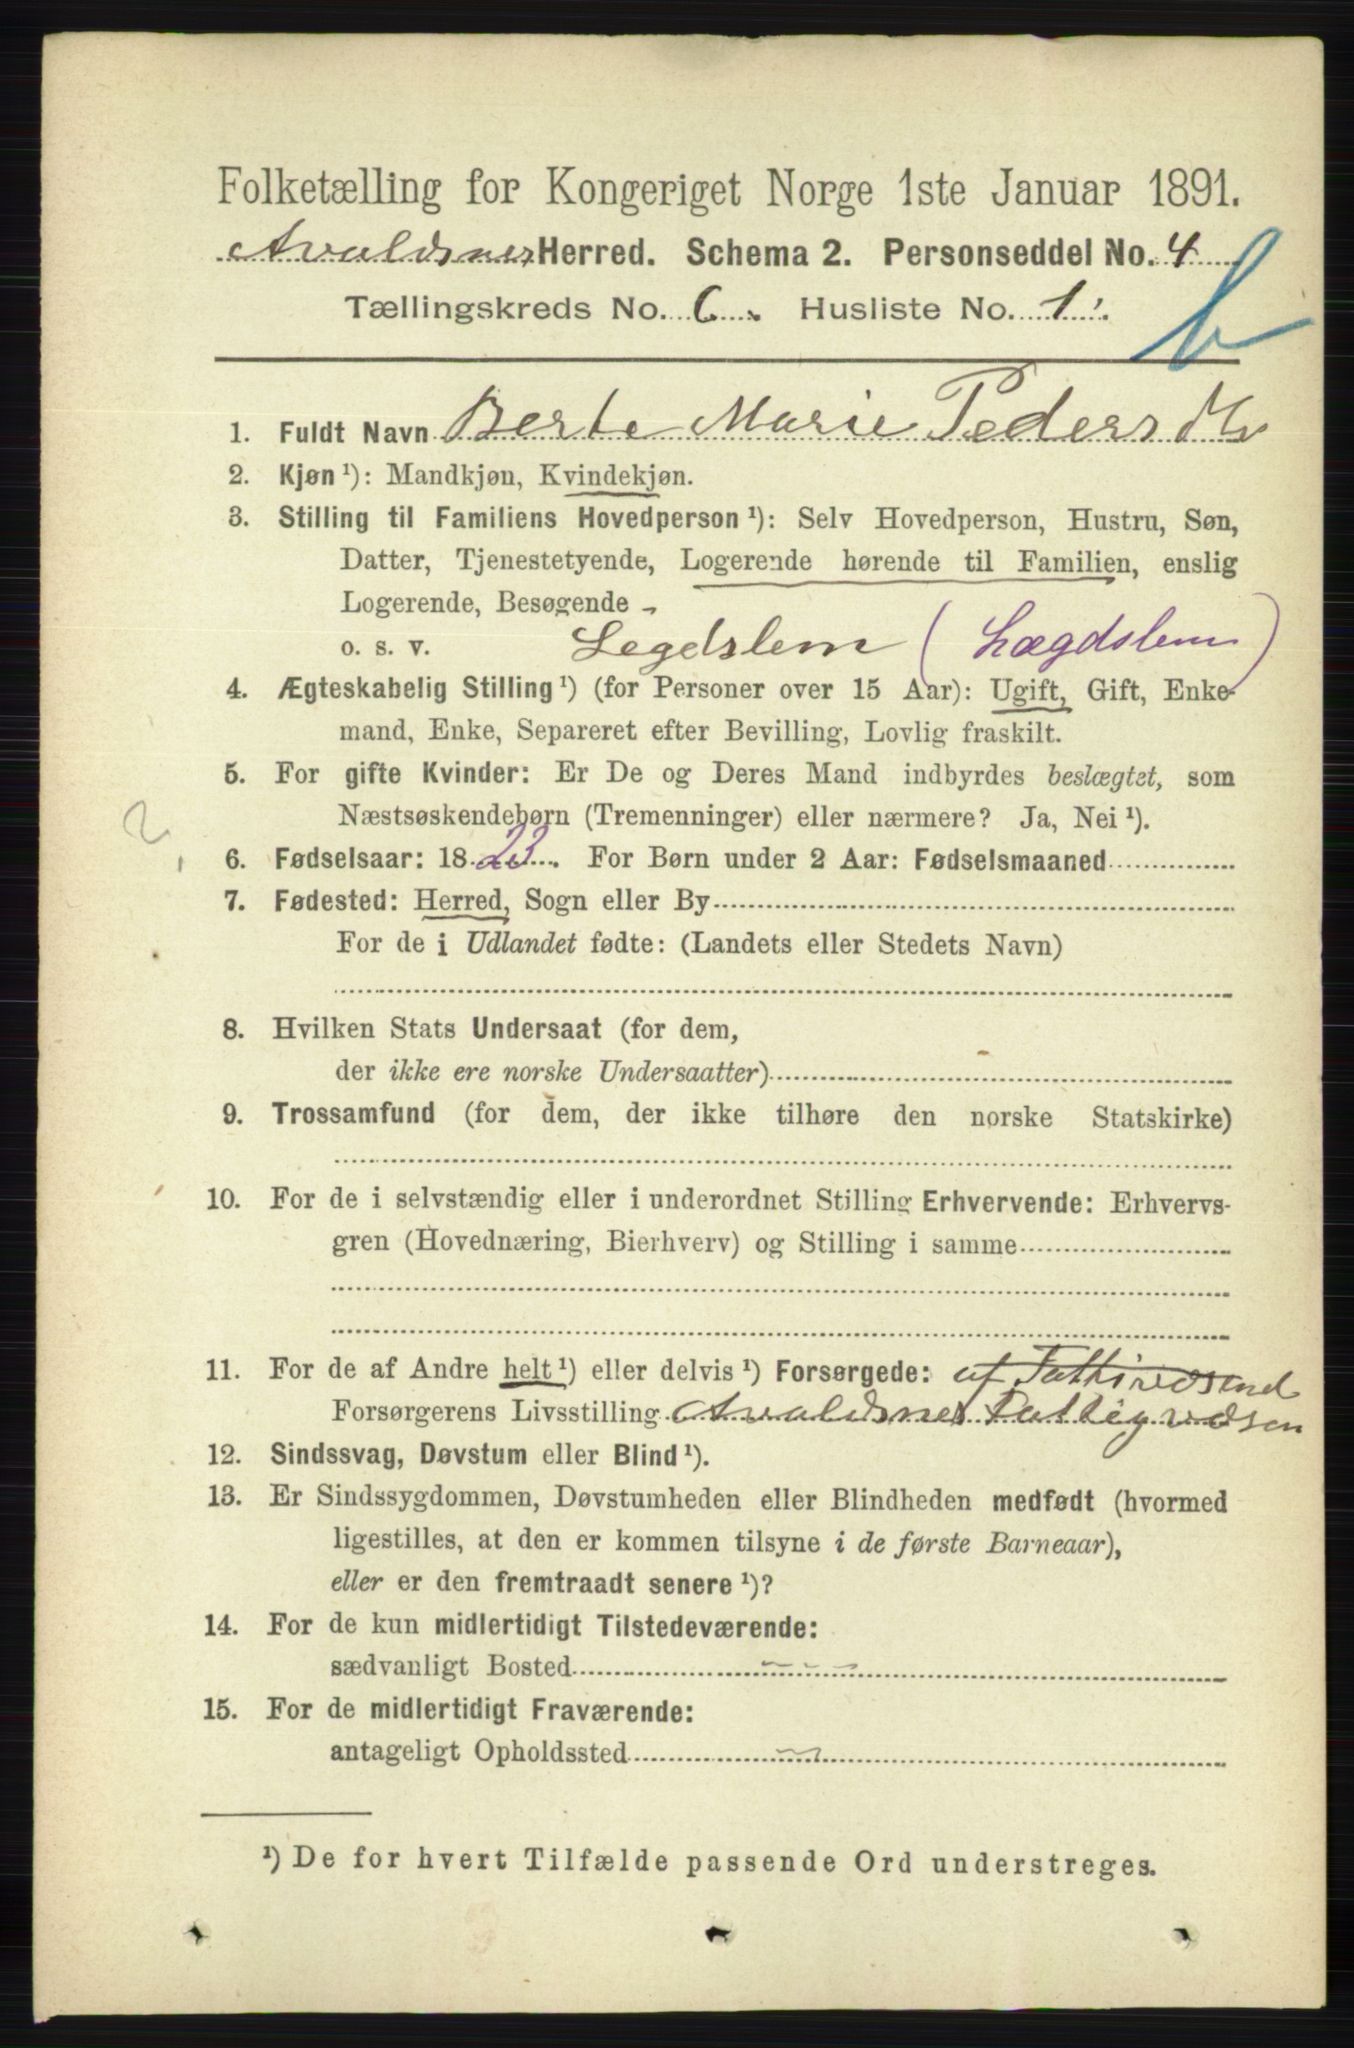 Folketælling for Kongeriget Norge 1ste Januar 1891.
Avaldsnes Herred. Schema 2. Personseddel No. 4
Tællingskreds No. 6. Husliste No. 1.
b
1. Fuldt Navn Berte Marie Peders
2. Kjøn ¹): Mandkjøn, Kvindekjøn.
3. Stilling til Familiens Hovedperson ¹): Selv Hovedperson, Hustru, Søn,
Datter, Tjenestetyende, Logerende hørende til Familien, enslig
Logerende, Besøgende
o. s. v. Legdslem (Lægdslem)
4. Ægteskabelig Stilling ¹) (for Personer over 15 Aar): Ugift, Gift, Enke-
mand, Enke, Separeret efter Bevilling, Lovlig fraskilt.
5. For gifte Kvinder: Er De og Deres Mand indbyrdes beslægtet, som
Næstsøskendebørn (Tremenninger) eller nærmere? Ja, Nei ¹).
2
6. Fødselsaar: 1823. For Børn under 2 Aar: Fødselsmaaned
7. Fødested: Herred, Sogn eller By
For de i Udlandet fødte: (Landets eller Stedets Navn)
8. Hvilken Stats Undersaat (for dem,
der ikke ere norske Undersaatter)
9. Trossamfund (for dem, der ikke tilhøre den norske Statskirke)
10. For de i selvstændig eller i underordnet Stilling Erhvervende: Erhvervs-
gren (Hovednæring, Bierhverv) og Stilling i samme
11. For de af Andre helt ¹) eller delvis ¹) Forsørgede: af
Forsørgerens Livsstilling Avaldsnes Fattigvæsen
12. Sindssvag, Døvstum eller Blind ¹).
13. Er Sindssygdommen, Døvstumheden eller Blindheden medfødt (hvormed
ligestilles, at den er kommen tilsyne i de første Barneaar),
eller er den fremtraadt senere ¹)?
14. For de kun midlertidigt Tilstedeværende:
sædvanligt Bosted
15. For de midlertidigt Fraværende:
antageligt Opholdssted
¹) De for hvert Tilfælde passende Ord understreges.